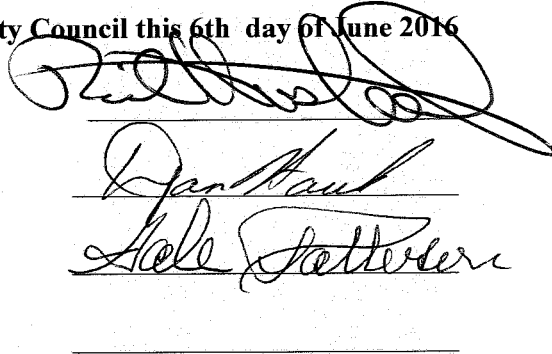 ty Council this 6th day of June 2016
Dan
Gale Patterson